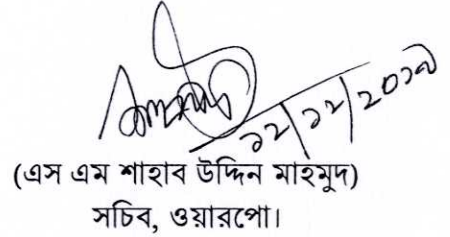 ১২/১২/২০১৯
(এস এম শাহাব উদ্দিন মাহমুদ)
সচিব, ওয়ারপো।